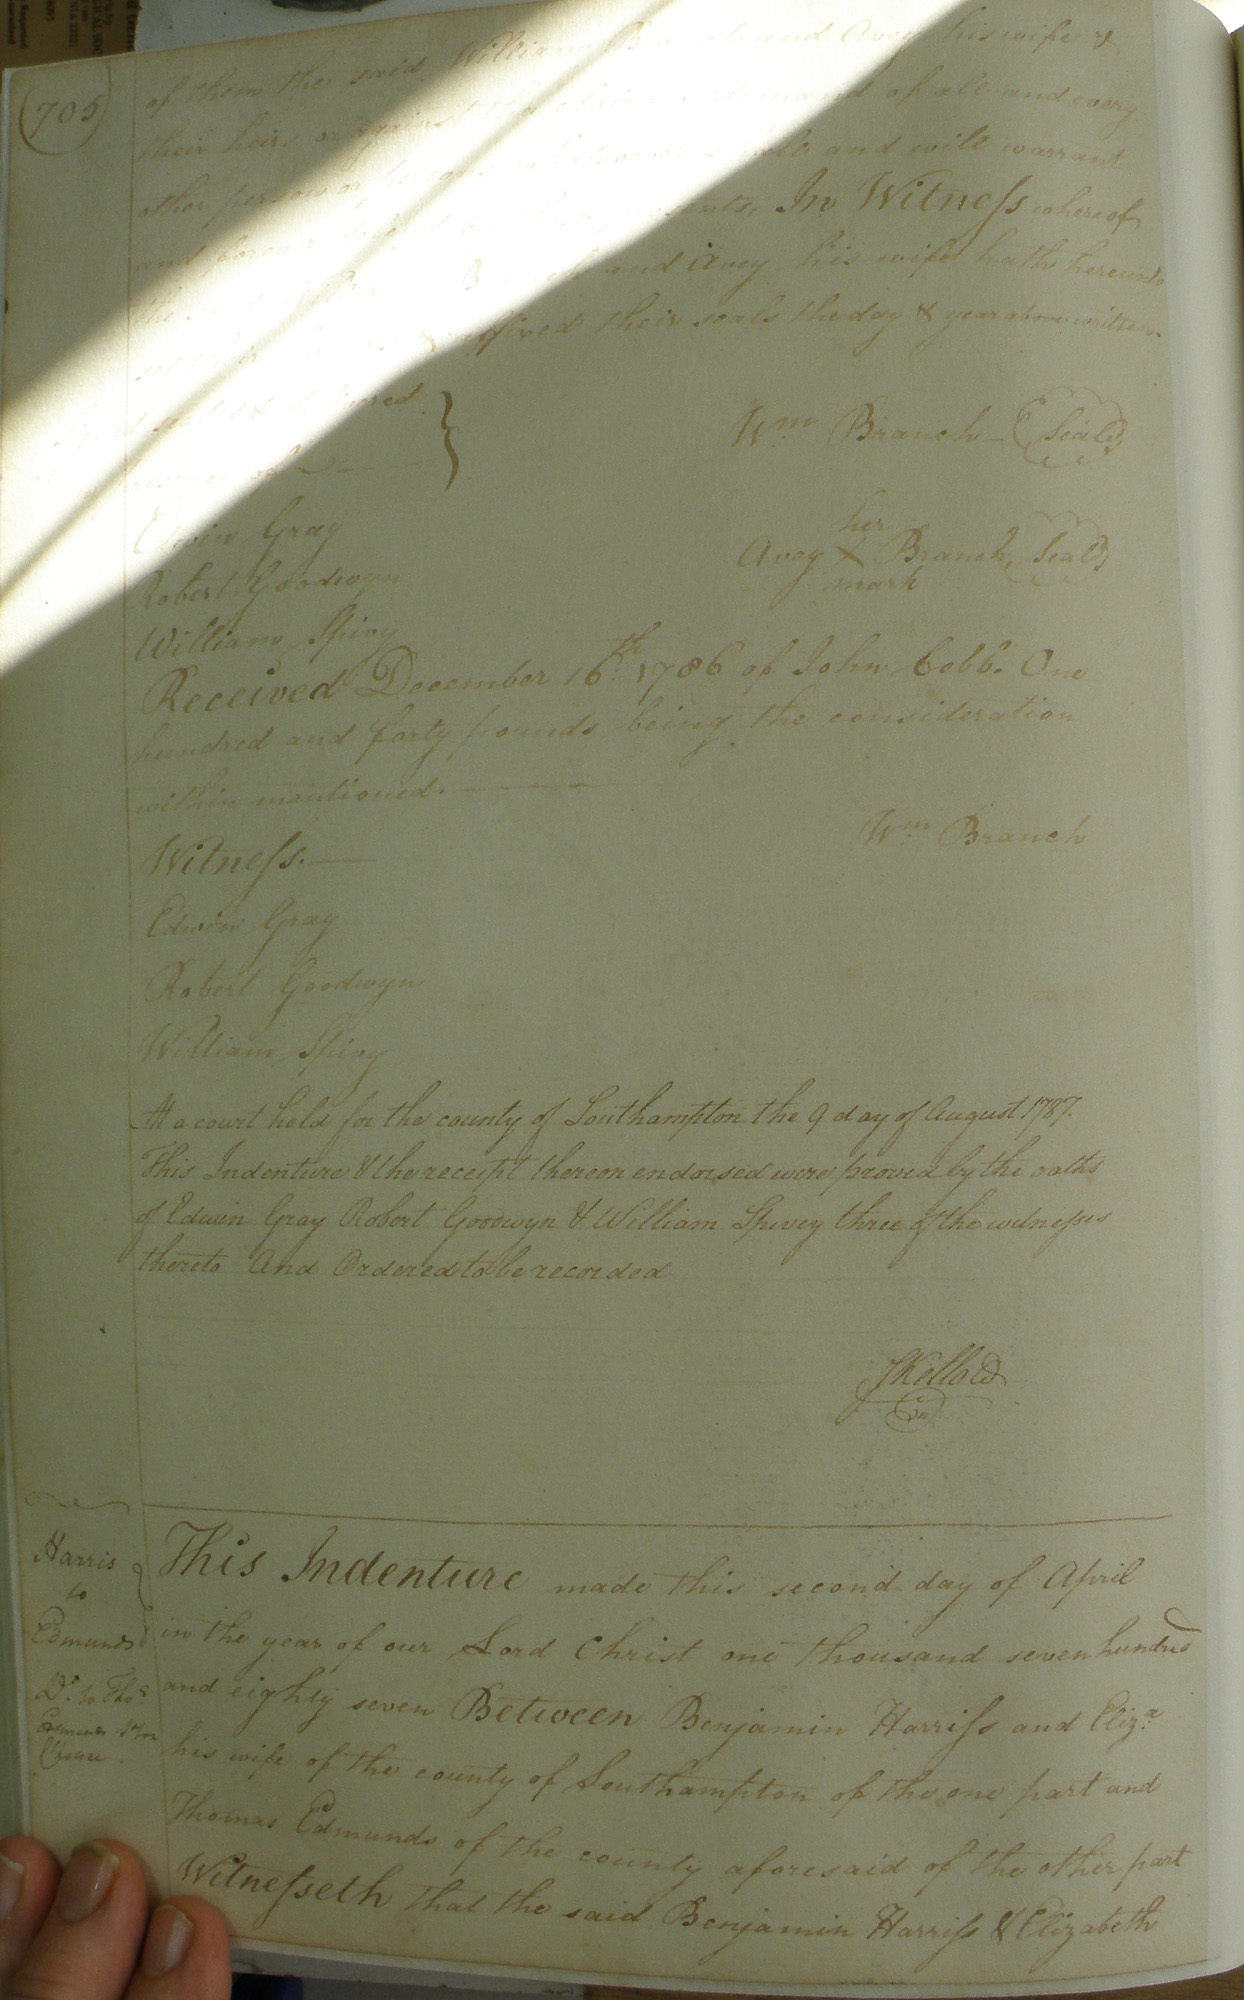 (705)
of them the said William and Avey his wife &
their heirs or against the claim demand of all and every
other person or persons and will warrant
and forever In Witness whereof
the and Avey his wife hath hereunto
affixed their seals the day & year above written.
sealed & delivered }
Wm Branch - Seal
Edwin Gray
her
Avey X Branch, Seal
mark
Robert Goodwyn
William Spivy
Received December 16th 1786 of John Cobb. One
hundred and forty pounds being the consideration
within mentioned.
Wm Branch
Witness.
Edwin Gray
Robert Goodwyn
William Spivy
At a court held for the county of Southampton the 9 day of August 1787.
This Indenture & the receipt thereon endorsed were proved by the oaths
of Edwin Gray Robert Goodwyn & William Spivey three of the witnesses
thereto And Ordered to be recorded
Harris
to
Edmunds
Do. to Thos
This Indenture made this second day of April
in the year of our Lord Christ one thousand seven hundred
and eighty seven Between Benjamin Harriss and Eliza
his wife of the county of Southampton of the one part and
Thomas Edmunds of the county aforesaid of the other part
Witnesseth that the said Benjamin Harriss & Elizabeth